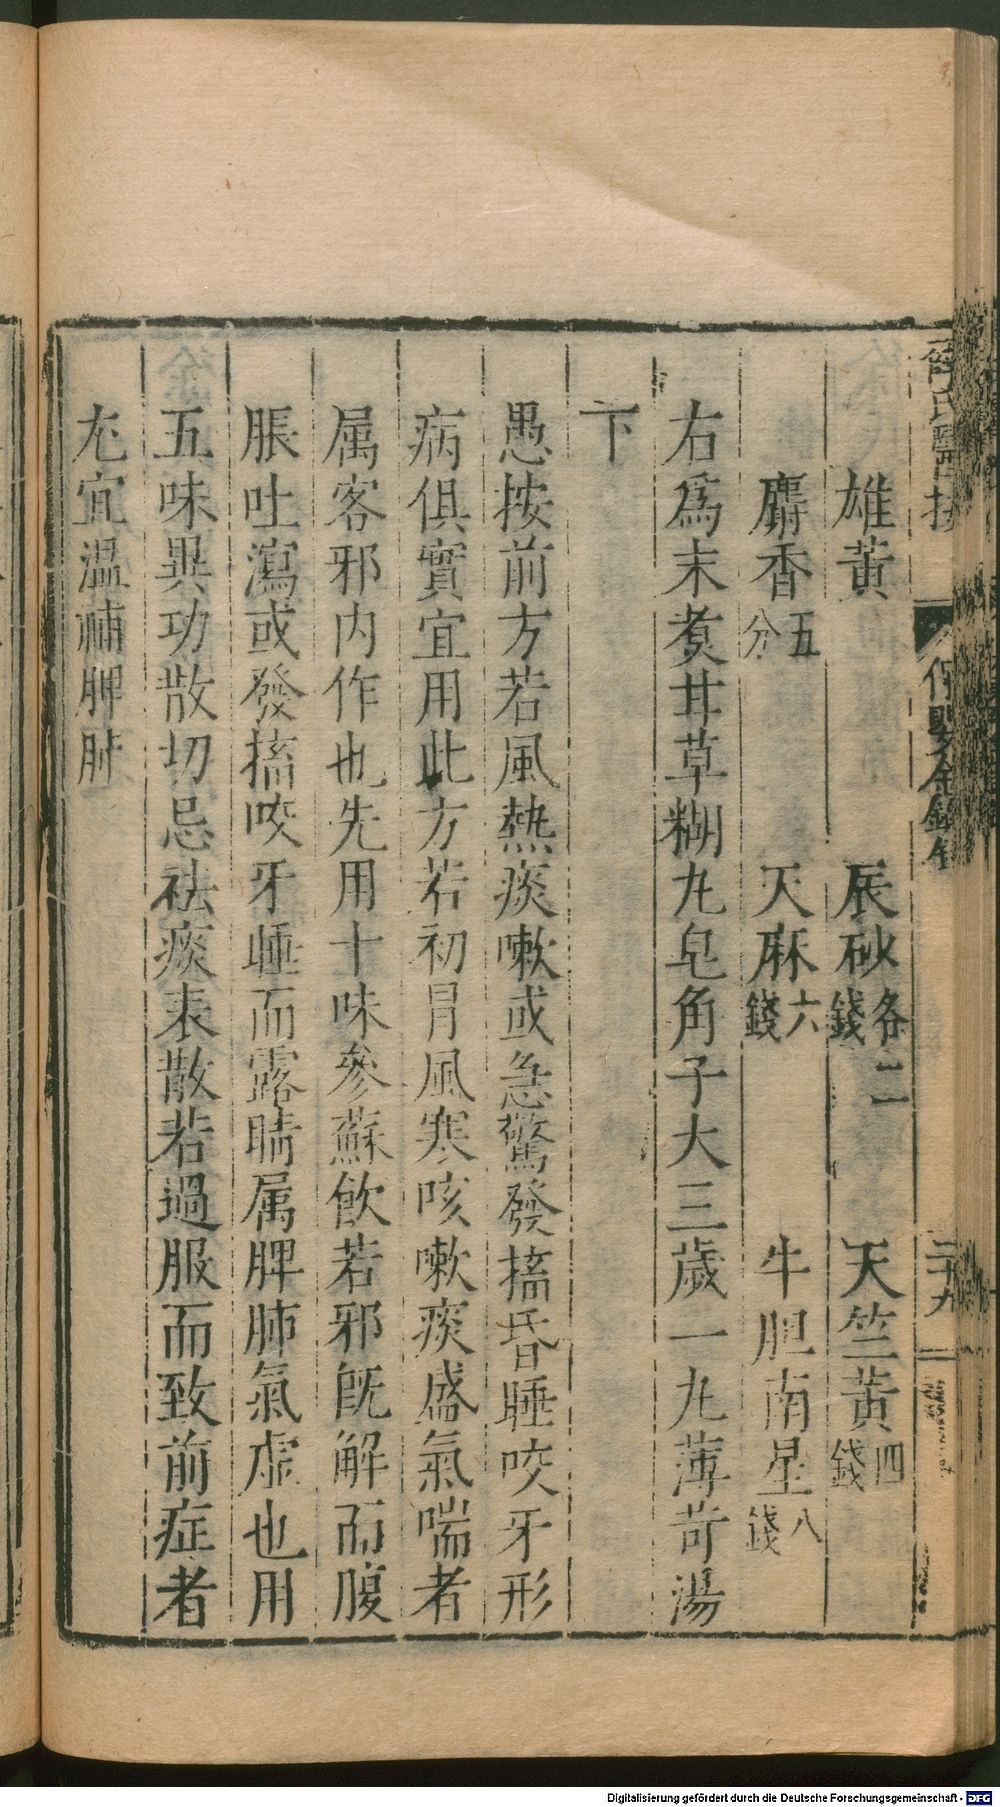 雄黃 辰砂各二錢 天竺黃四錢
麝香五分 天麻六錢 牛胆南星八錢
右爲末煑甘草糊丸皂角子大三歲一丸薄苛湯
下
愚按前方若風熱痰嗽或急驚發搐昏睡咬牙形
病俱實宜用此方若初冐風寒咳嗽痰盛氣喘者
属客邪内作也先用十味參蘇飲若邪既解而腹
脹吐瀉或發搐咬牙睡而露睛属脾肺氣虛也用
五味異功散切忌祛痰表散若過服而致前症者
尤宜溫補脾肺
保嬰金鏡錄
二十九
Digitalisierung gefördert durch die Deutsche Forschungsgemeinschaft - DFG